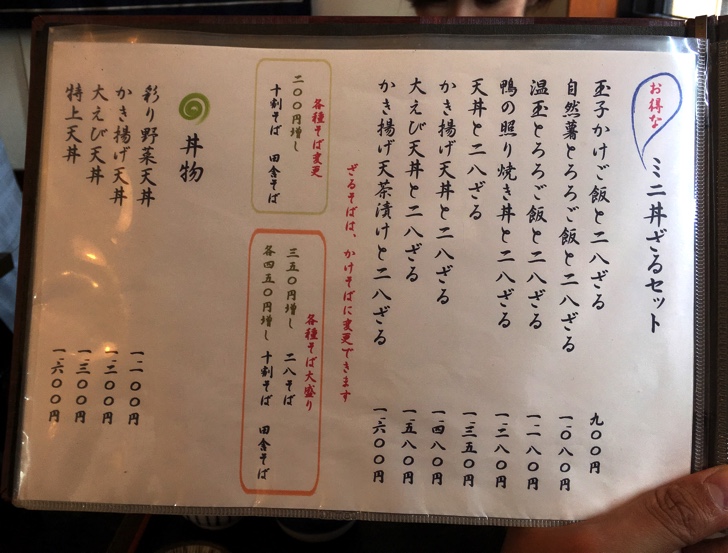 お得な ミニ丼ざるセット
玉子かけご飯と二八ざる 九〇〇円
自然薯とろろご飯と二八ざる 一、〇八〇円
温玉とろろご飯と二八ざる 一、二八〇円
鴨の照り焼き丼と二八ざる 一、三八〇円
天丼と二八ざる 一、三五〇円
かき揚げ天丼と二八ざる 一、四八〇円
大えび天丼と二八ざる 一、五八〇円
かき揚げ天茶漬けと二八ざる 一、六〇〇円
ざるそばは、かけそばに変更できます
各種そば変更
二〇〇円増し
十割そば 田舎そば
各種そば大盛り
三五〇円増し 二八そば
各四五〇円増し 十割そば 田舎そば
丼物
彩り野菜天丼 一、一〇〇円
かき揚げ天丼 一、二〇〇円
大えび天丼 一、三〇〇円
特上天丼 一、六〇〇円